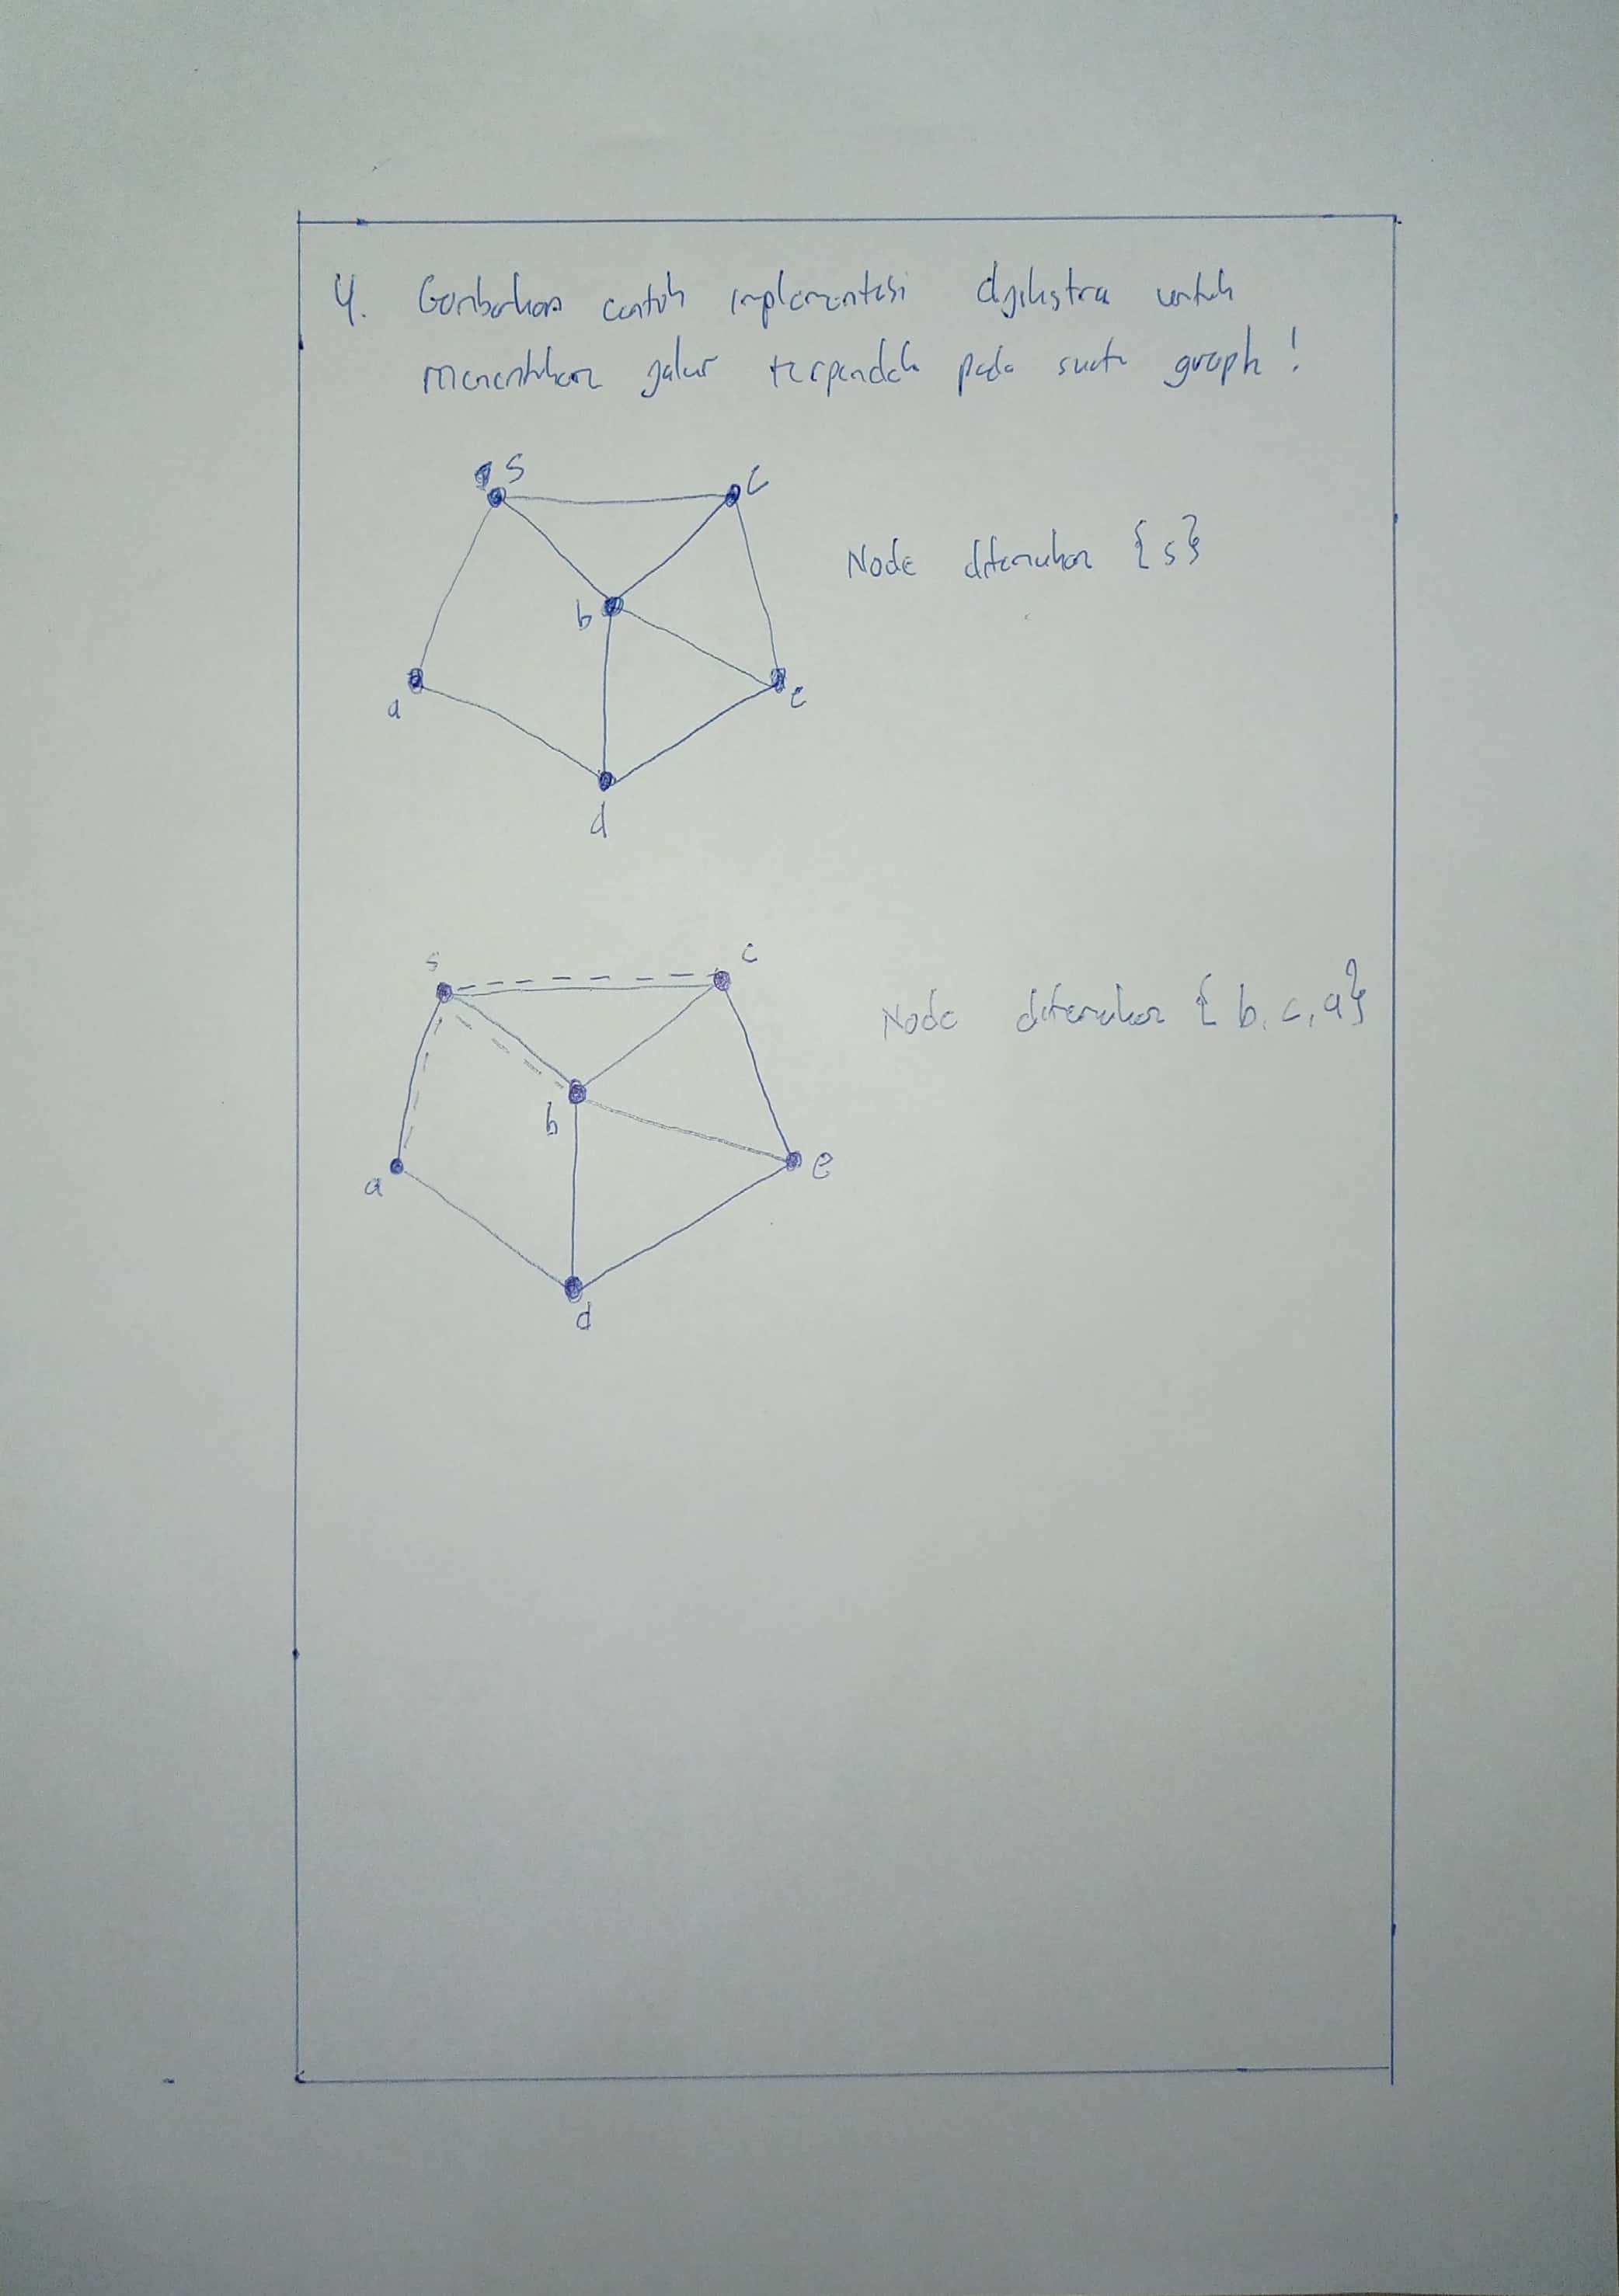 4. Gambarkan contoh implementasi djikstra untuk
menentukan jalur terpendek pada suatu graph!
s c
Node ditemukan {s}
b
a e
d
s c
Node ditemukan {b, c, a}
b
a e
d